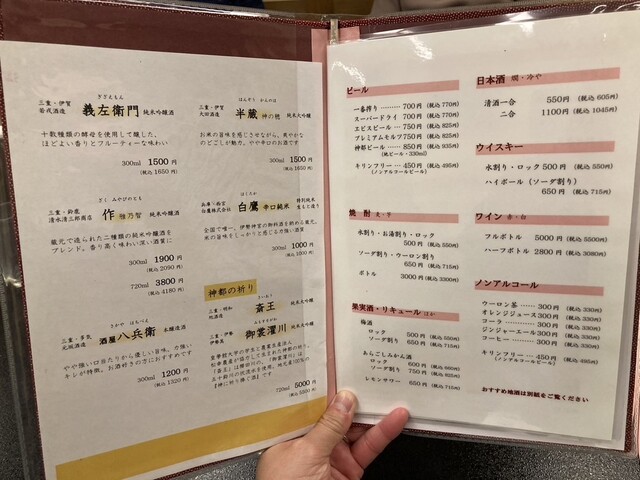 ぎざえもん
三重・伊賀
若戎酒造
義左衛門 純米吟醸酒
十数種類の酵母を使用して醸した、
ほどよい香りとフルーティーな味わい
300ml 1500円
(税込 1650円)
三重・鈴鹿
清水清三郎商店
ざく みやびのとも
作 雅乃智 純米吟醸酒
蔵元で造られた二種類の純米吟醸酒を
ブレンド。香り高く味わい深い酒質に
300ml 1900円
(税込 2090円)
720ml 3800円
(税込 4180円)
さかや はちべえ
三重・多気
元坂酒造
酒屋八兵衛 本醸造酒
やや強い口当たりから優しい旨味、力強い
キレが特徴。お酒好きの方におすすめです
300ml 1200円
(税込 1320円)
はんぞう かんのほ
三重・伊賀
大田酒造
半蔵 神の穂 純米大吟醸
お米の旨味を感じさせながら、爽やかな
のどごしが魅力。やや辛口のお酒です
300ml 1500円
(税込 1650円)
はくたか
兵庫・西宮
白鷹株式会社
白鷹 辛口純米 特別純米
生もと造り
全国で唯一、伊勢神宮の御料酒を納める蔵元。
米の旨味をしっかりと感じる力強い酒質
300ml 1000円
(税込 1100円)
神都の祈り
さいおう
斎王 純米大吟醸
みもすそがわ
御裳濯川 純米大吟醸
皇學館大学の学生と農業生産法人、
「斎王」は櫛田川の、「御裳濯川」は
五十鈴川の伏流水を使用。地元産100%の
『神に祈り捧ぐ酒』です
720ml 5000円
(税込 5500円)
ビール
一番搾り 700円 (税込 770円)
スーパードライ 700円 (税込 770円)
エビスビール 750円 (税込 825円)
プレミアムモルツ 750円 (税込 825円)
神都ビール 850円 (税込 935円)
(地ビール・330ml)
キリンフリー 450円 (税込 495円)
(ノンアルコールビール)
焼 酎 麦・芋
水割り・お湯割り・ロック
500円 (税込 550円)
ソーダ割り・ウーロン割り
650円 (税込 715円)
ボトル 3000円 (税込 3300円)
果実酒・リキュール ほか
梅酒
ロック 500円 (税込 550円)
ソーダ割り 650円 (税込 715円)
あらごしみかん酒
ロック 600円 (税込 660円)
ソーダ割り 750円 (税込 825円)
レモンサワー 650円 (税込 715円)
日本酒 燗・冷や
清酒一合 550円 (税込 605円)
二合 1100円 (税込 1045円)
ウイスキー
水割り・ロック 500円 (税込 550円)
ハイボール (ソーダ割り)
650円 (税込 715円)
ワイン 赤・白
フルボトル 5000円 (税込 5500円)
ハーフボトル 2800円 (税込 3080円)
ノンアルコール
ウーロン茶 300円 (税込 330円)
オレンジジュース 300円 (税込 330円)
コーラ 300円 (税込 330円)
ジンジャーエール 300円 (税込 330円)
コーヒー 300円 (税込 330円)
キリンフリー 450円 (税込 495円)
(ノンアルコールビール)
おすすめ地酒は別紙をご覧ください